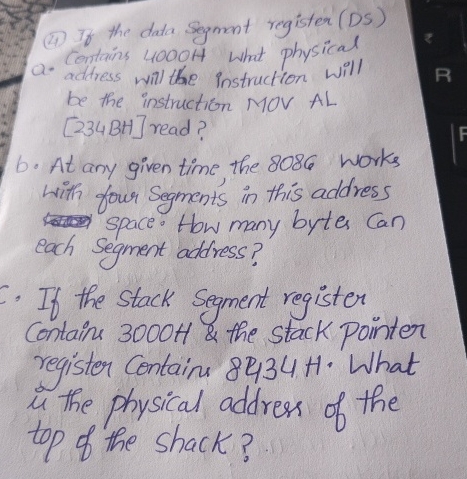 ④ If the data Segment register (DS)
Contains 4000H What physical
a. address will the instruction will
be the instruction MOV AL
[234BH] read?
b. At any given time, the 8086 works
with four Segments in this address
space. How many bytes can
each Segment address?
C. If the Stack Segment register
Contains 3000H & the stack pointer
register Contains 8434H. What
is the physical address of the
top of the shack?
R
F